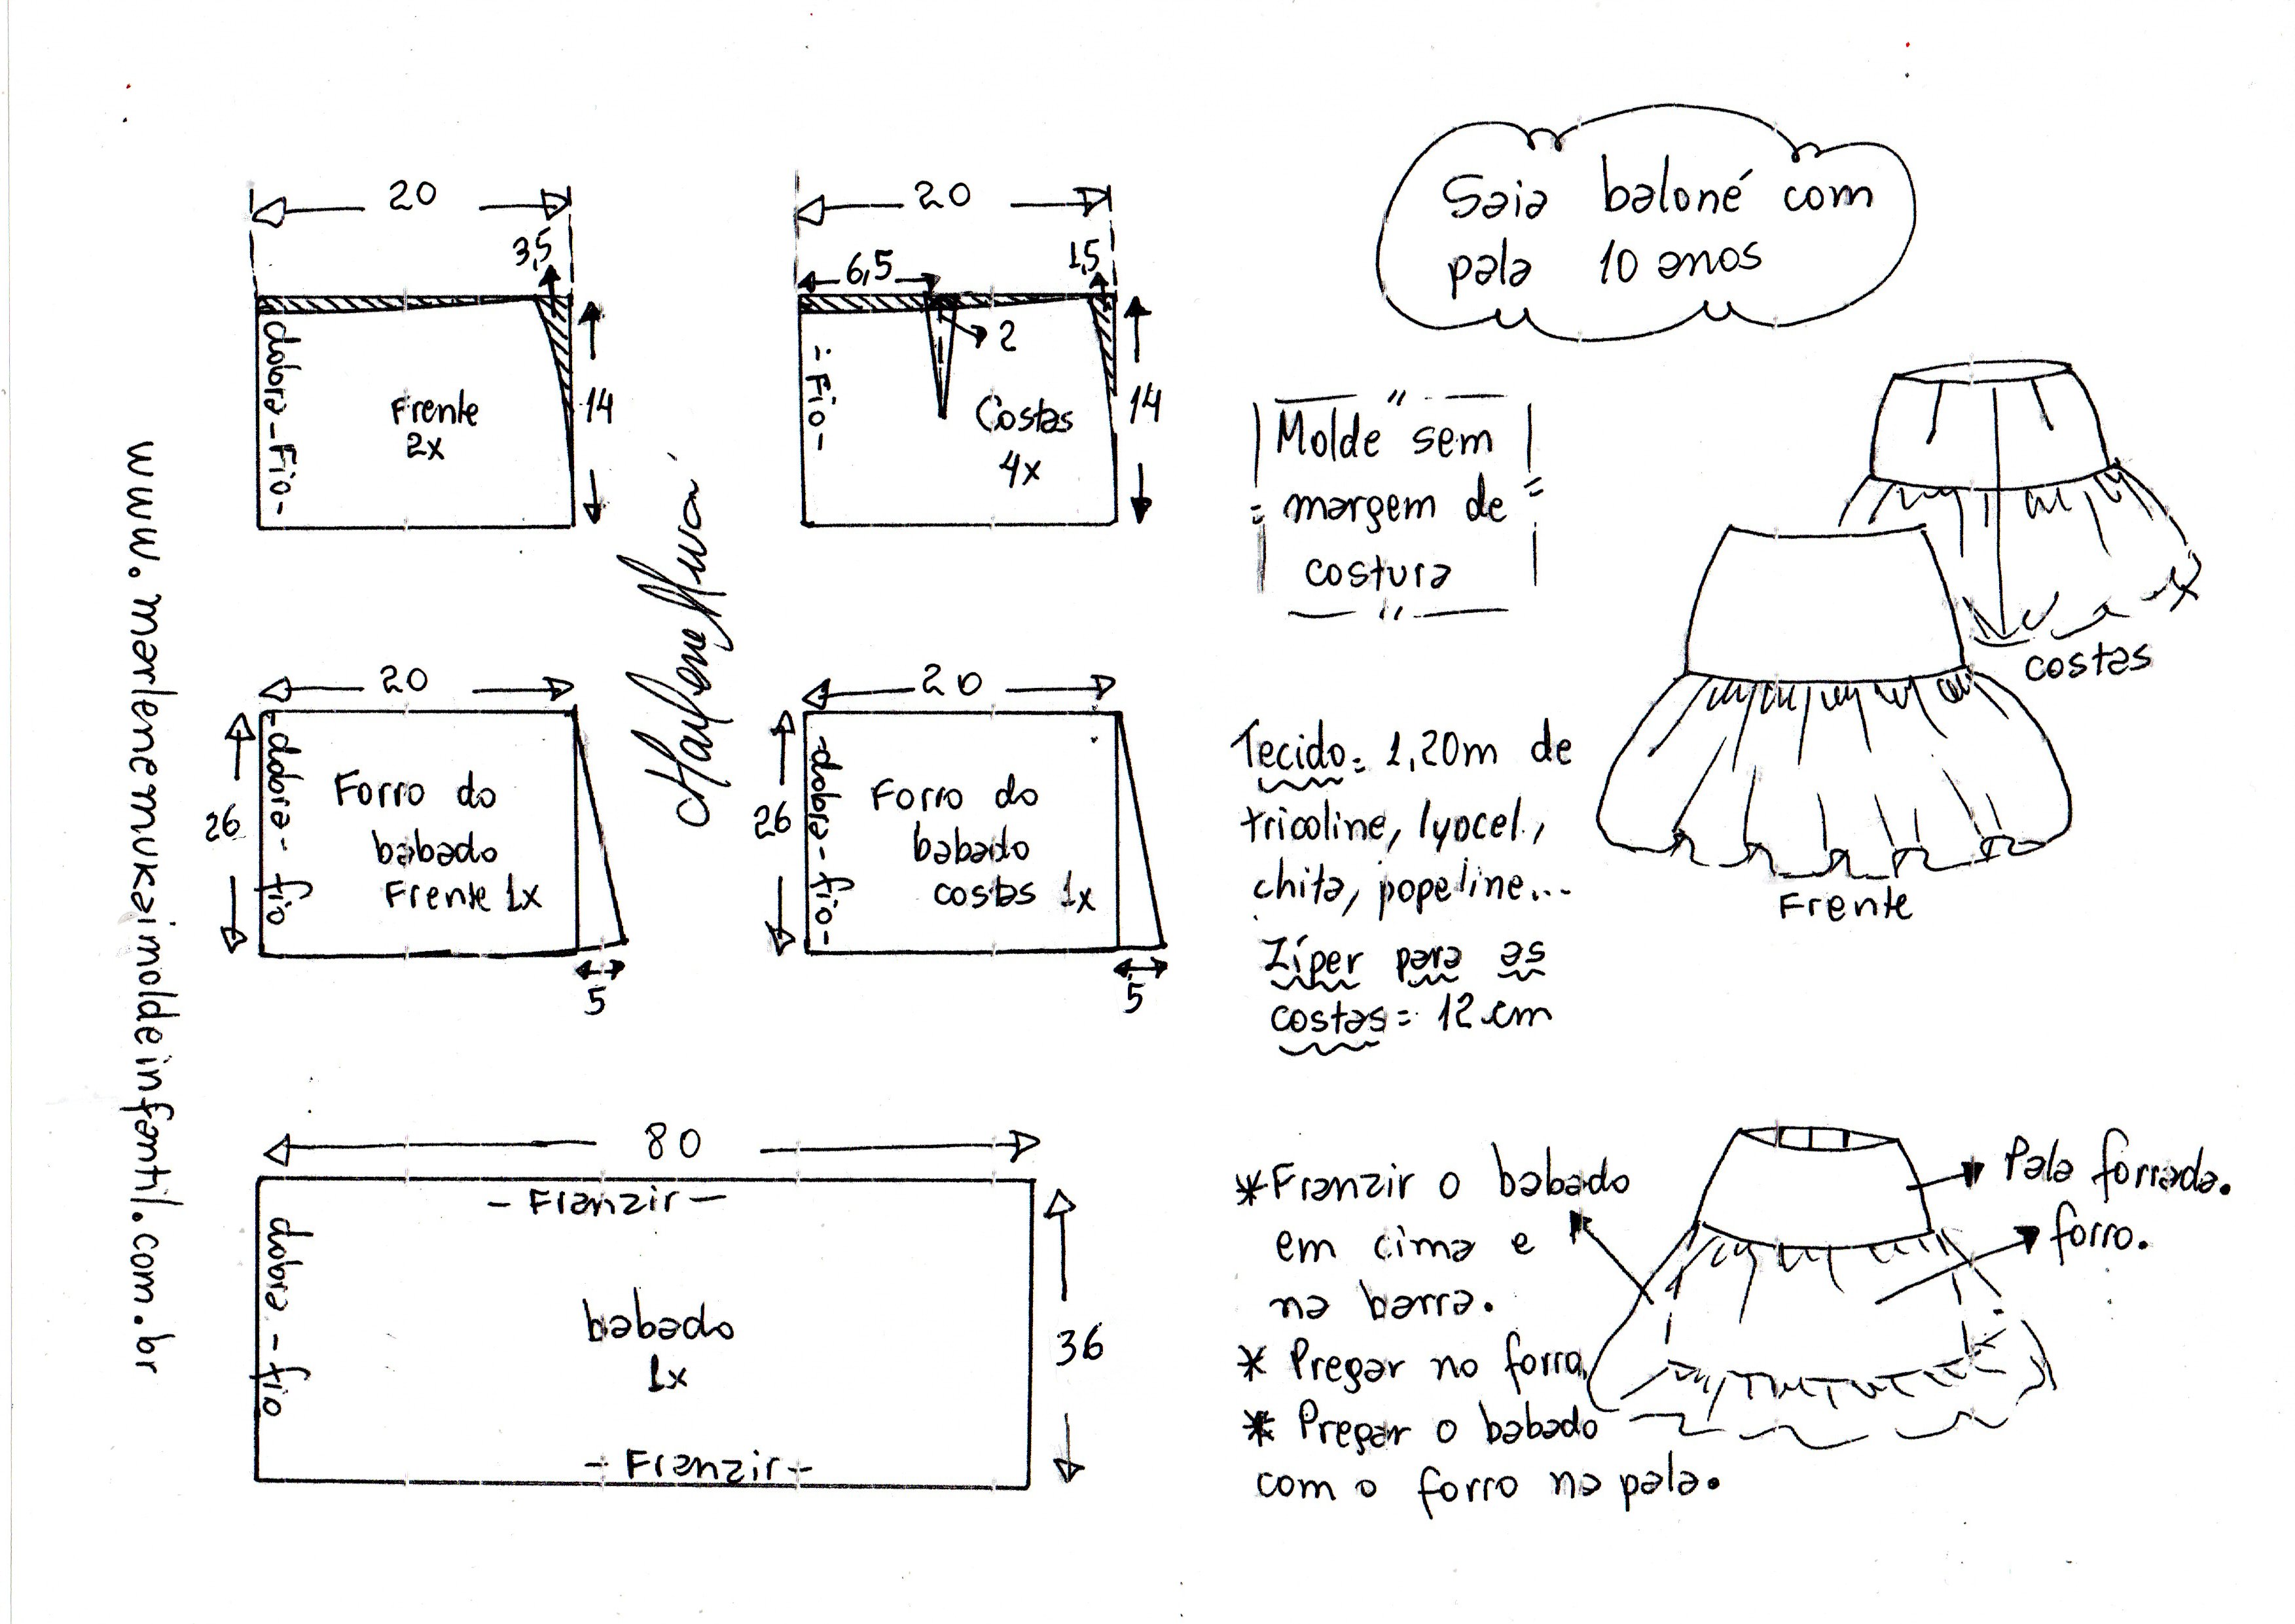 Saia baloné com
pala 10 anos
20
3,5
dobra - Fio -
Frente
2x
14
20
6,5
1,5
2
- Fio -
Costas
4x
14
"Molde" sem
margem de
costura
costas
Frente
20
26
- dobra - fio
Forro do
babado
Frente 1x
5
20
26
- dobra - fio -
Forro do
babado
costas 1x
5
Tecido = 1,20m de
tricoline, lyocel.,
chita, popeline...
Zíper para as
costas = 12 cm
80
- Franzir -
dobra - fio
babado
1x
36
- Franzir -
* Franzir o babado
em cima e
na barra.
* Pregar no forro,
* Pregar o babado
com o forro na pala.
Pala forrada.
forro.
www.marlenemukaimoldeinfantil.com.br